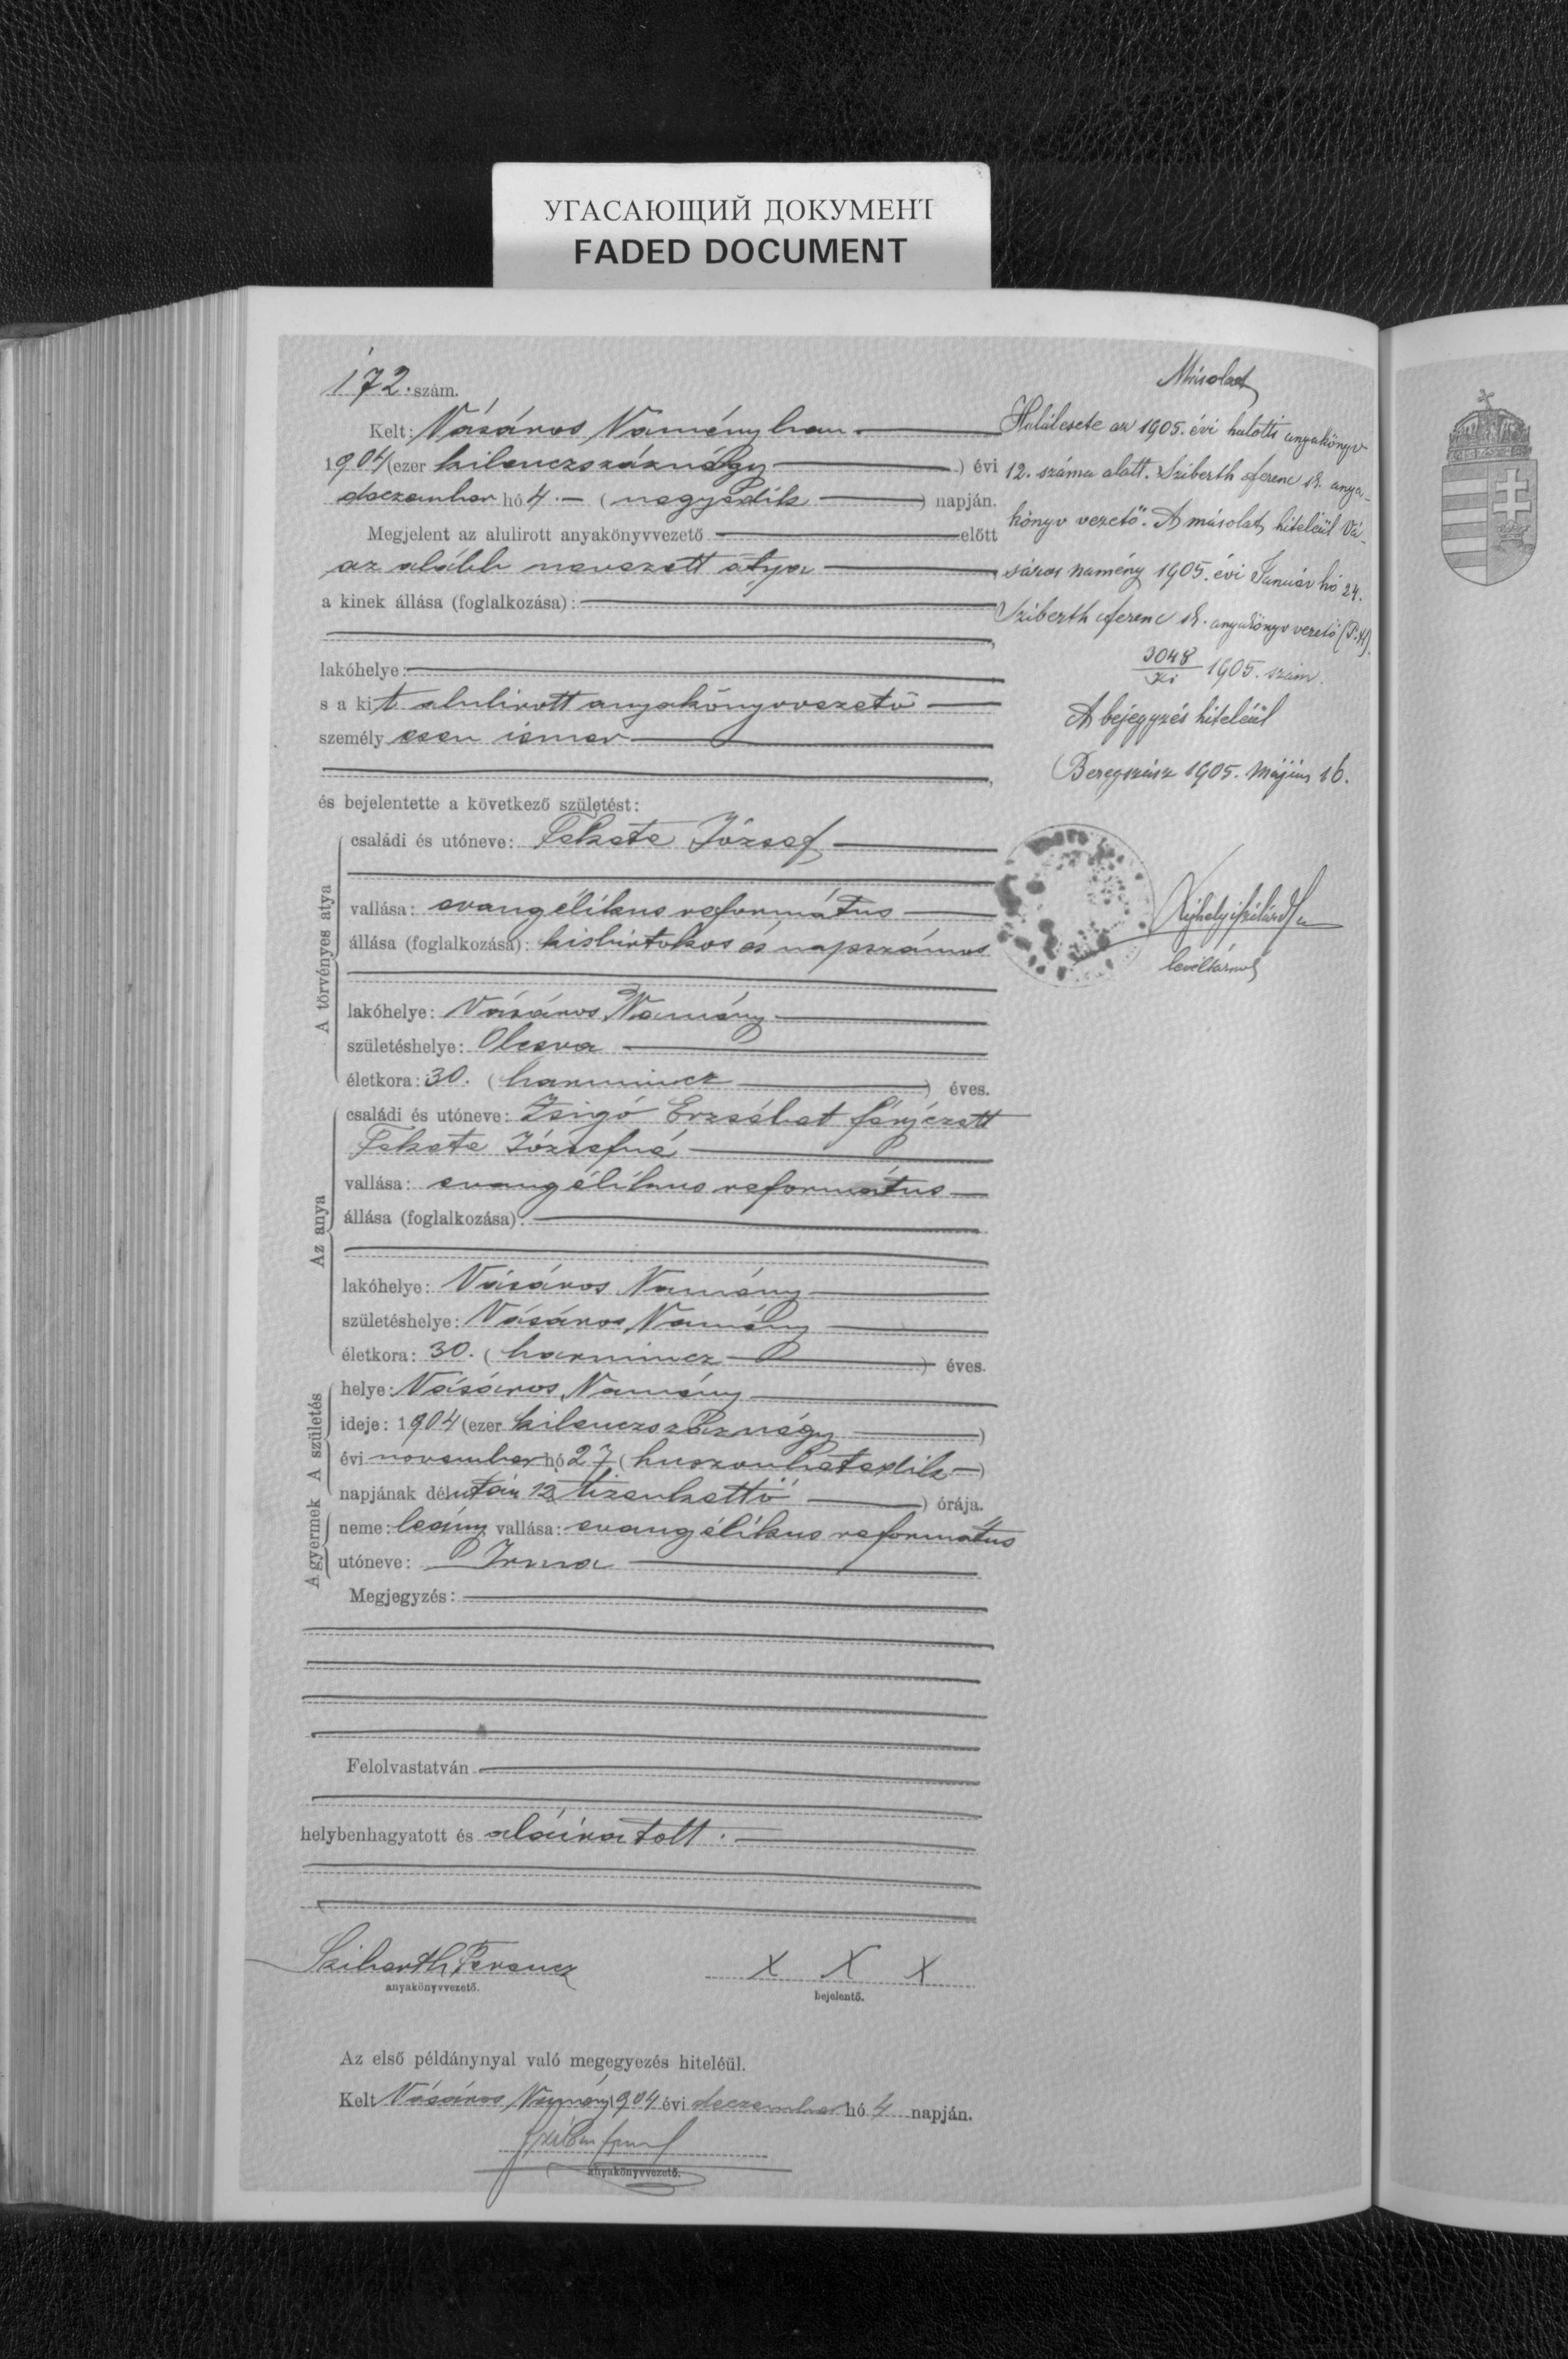 УГАСАЮЩИЙ ДОКУМЕНТ
FADED DOCUMENT
172. szám.
Kelt: Vásáros Naményban
1904 (ezer kilenczszáznégy) évi
deczember hó 4.- (negyedik) napján.
Megjelent az alulirott anyakönyvvezető előtt
az alább nevezett atya
a kinek állása (foglalkozása):
lakóhelye:
s a kit alulirott anyakönyvvezető
személyesen ismer
és bejelentette a következő születést:
A törvényes atya
családi és utóneve: Fekete József
vallása: evangélikus református
állása (foglalkozása): kisbirtokos és napszámos
lakóhelye: Vásáros Namény
születéshelye: Olcsva
életkora: 30. (harmincz) éves.
Az anya
családi és utóneve: Zsigó Erzsébet férjezett
Fekete Józsefné
vallása: evangélikus református
állása (foglalkozása):
lakóhelye: Vásáros Namény
születéshelye: Vásáros Namény
életkora: 30. (harmincz) éves.
A születés
helye: Vásáros Namény
ideje: 1904 (ezer kilenczszáznégy)
évi november hó 27 (huszonhetedik)
napjának délután 12 tizenkettő) órája.
A gyermek
neme: leány vallása: evangélikus református
utóneve: Irma
Megjegyzés:
Felolvastatván
helybenhagyatott és aláiratott.
Sziberth Ferencz
anyakönyvvezető.
X X X
bejelentő.
Az első példánynyal való megegyezés hiteléül.
Kelt Vásáros Namény 1904 évi deczember hó 4 napján.
anyakönyvvezető.
Másolat
Halálesete az 1905. évi halotti anyakönyv
12. száma alatt. Sziberth Ferenc sk. anya-
könyv vezető". A másolat hiteléül Vá-
sáros namény 1905. évi Január hó 24.
Sziberth Ferenc sk. anyakönyv vezető (P.H).
3048
ki 1905. szám.
A bejegyzés hiteléül
Beregszász 1905. Május 16.
levéltárnok